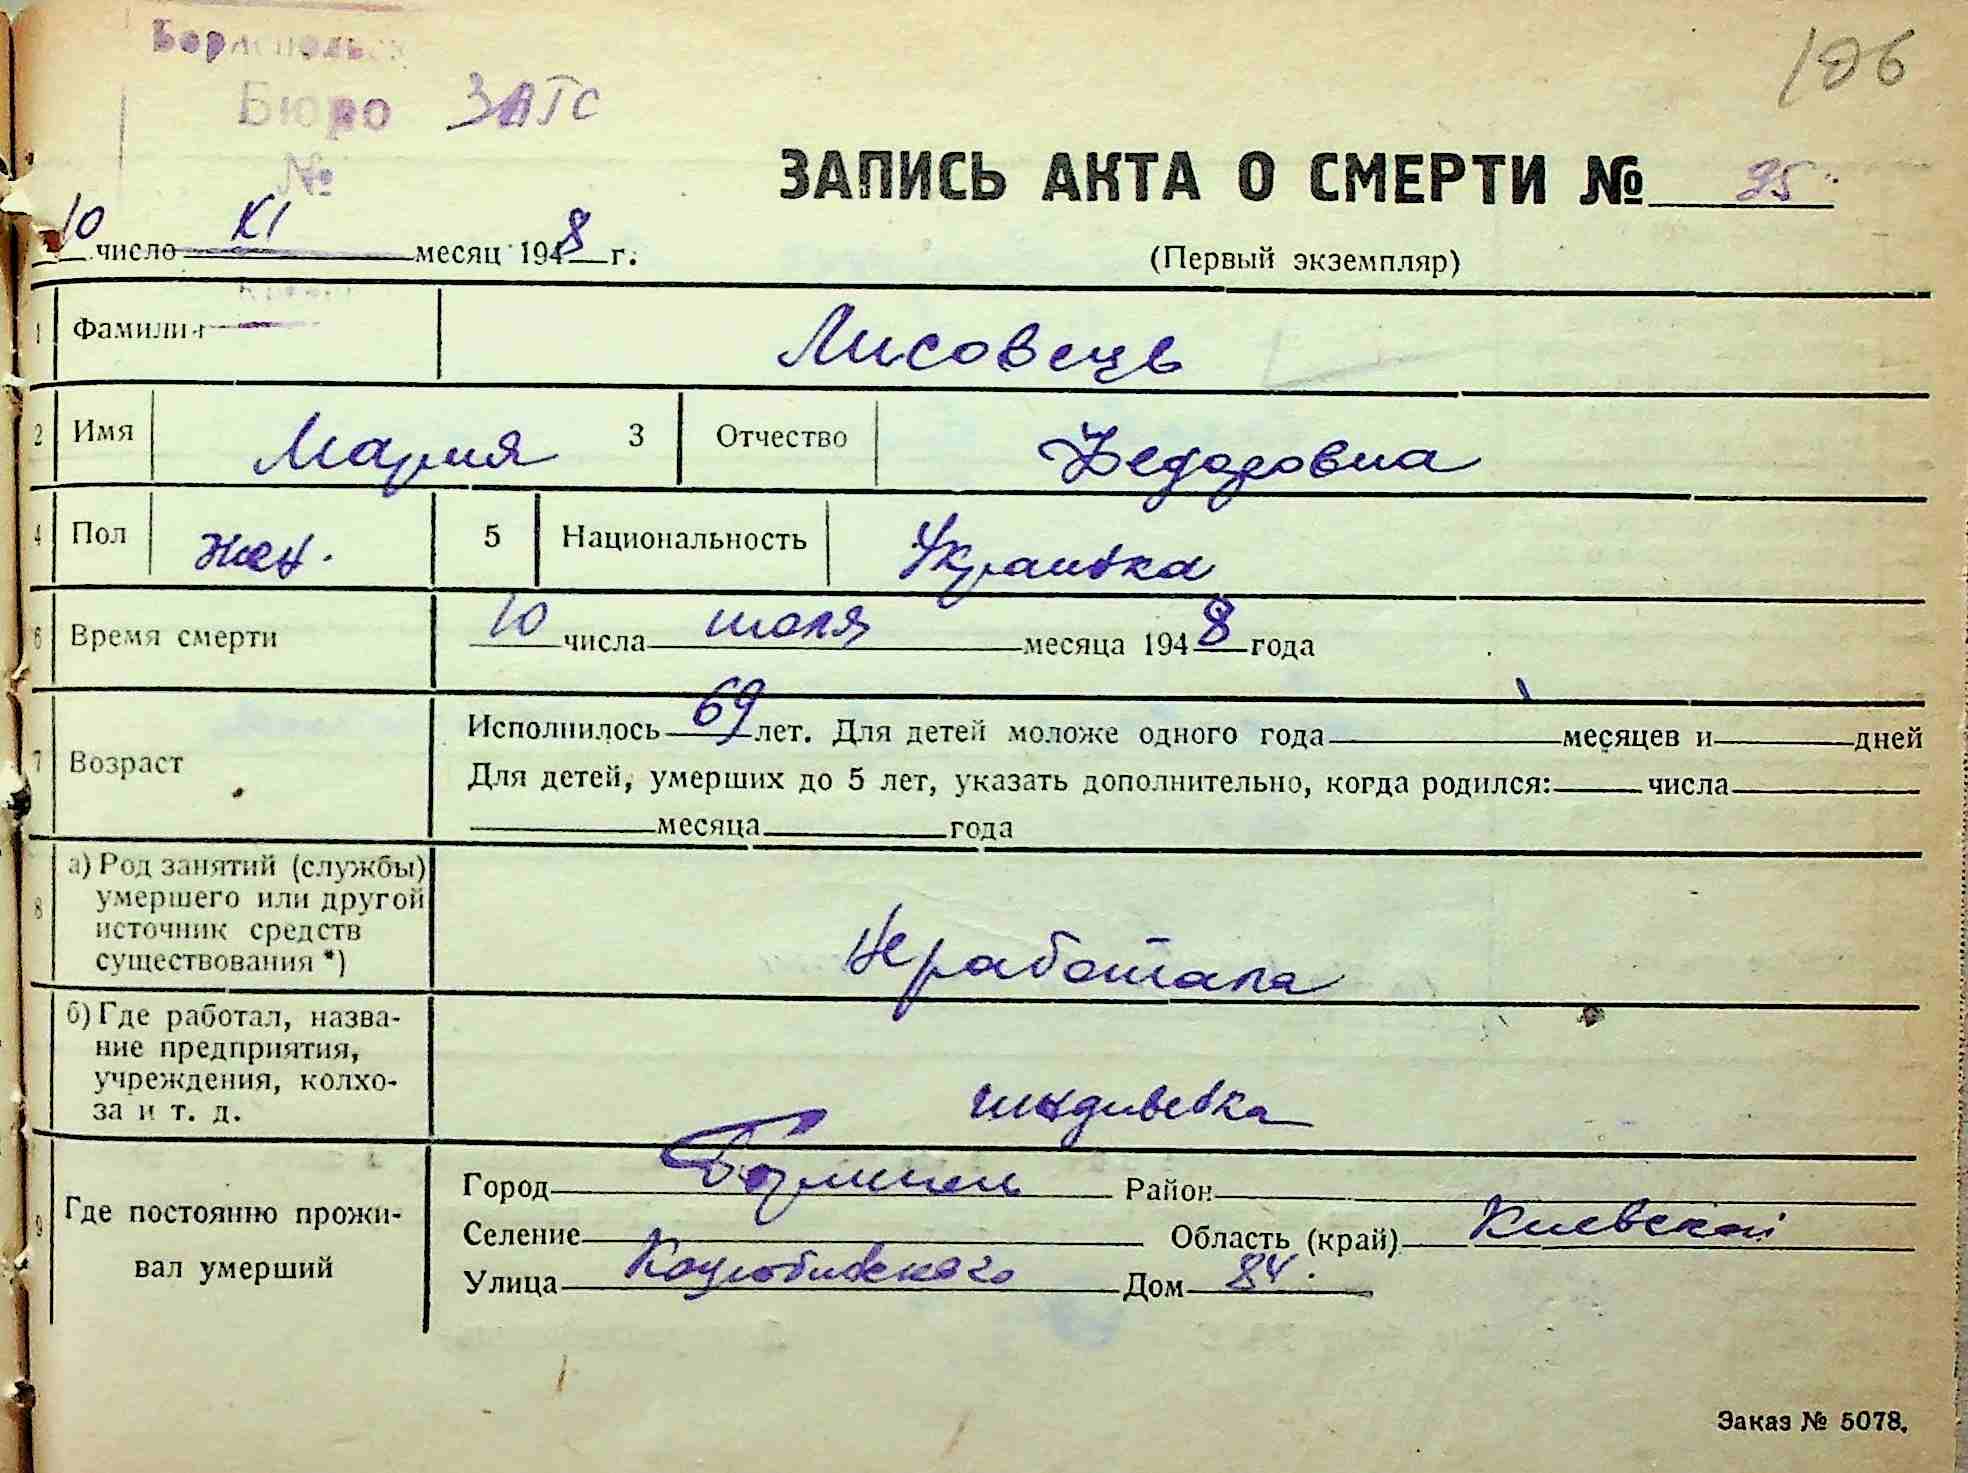 Бориспольск
186
Бюро ЗАГС
№
ЗАПИСЬ АКТА О СМЕРТИ № 95
10 число XI месяц 1948 г.
(Первый экземпляр)
1 Фамилия Лисовець
2 Имя Мария 3 Отчество Федоровна
4 Пол жен. 5 Национальность Украинка
6 Время смерти 10 числа июля месяца 1948 года
7 Возраст Исполнилось 69 лет. Для детей моложе одного года месяцев и дней
Для детей, умерших до 5 лет, указать дополнительно, когда родился: числа
месяца года
8 а) Род занятий (службы)
умершего или другой
источник средств
существования *) Не работала
б) Где работал, назва-
ние предприятия,
учреждения, колхо-
за и т. д. иждивенка
9 Где постоянно прожи-
вал умерший
Город Район
Селение Область (край) Киевской
Улица Коцюбинского Дом 84.
Заказ № 5078.